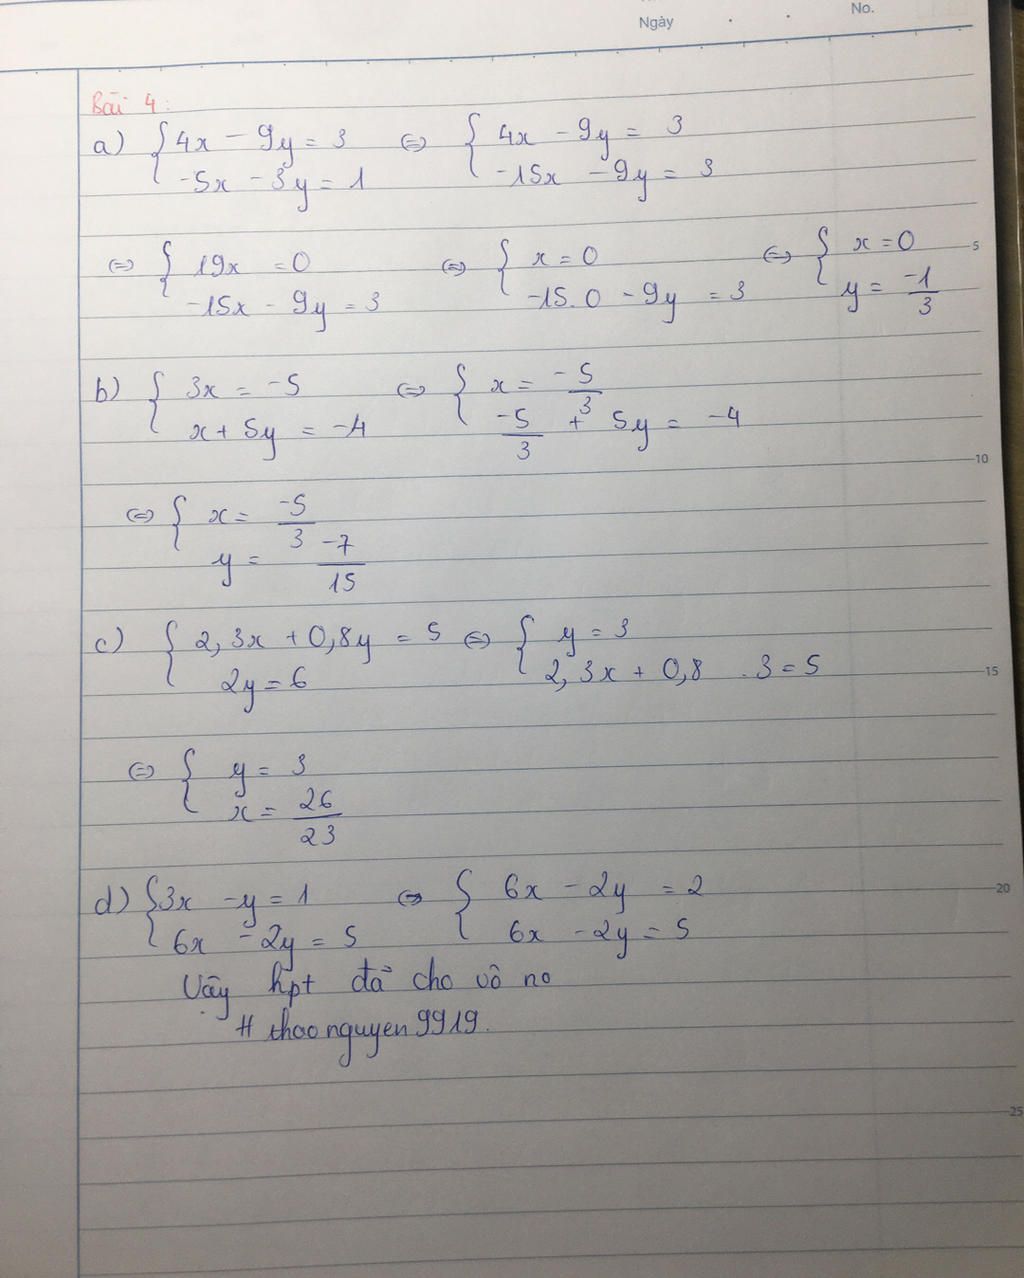 No.
Ngày
Bài 4:
a) { 4x - 9y = 3 ⇔ { 4x - 9y = 3
-5x - 3y = 1 -15x - 9y = 3
⇔ { 19x = 0 ⇔ { x = 0 ⇔ { x = 0
-15x - 9y = 3 -15.0 - 9y = 3 y = -1/3
5
b) { 3x = -5 ⇔ { x = -5/3
x + 5y = -4 -5/3 + 5y = -4
10
⇔ { x = -5/3
y = -7/15
c) { 2,3x + 0,8y = 5 ⇔ { y = 3
2y = 6 2,3x + 0,8 . 3 = 5
15
⇔ { y = 3
x = 26/23
d) { 3x - y = 1 ⇔ { 6x - 2y = 2
20
6x - 2y = 5 6x - 2y = 5
Vậy hpt đã cho vô no
# thaonguyen9919.
25